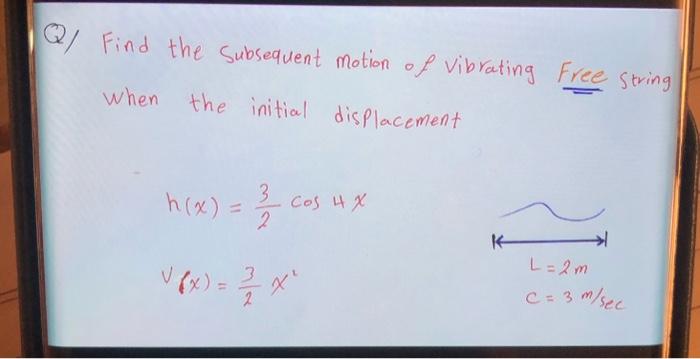 Q/ Find the subsequent motion of vibrating Free string
when the initial displacement
h(x) = 3/2 cos 4x
v(x) = 3/2 x²
L = 2m
C = 3 m/sec